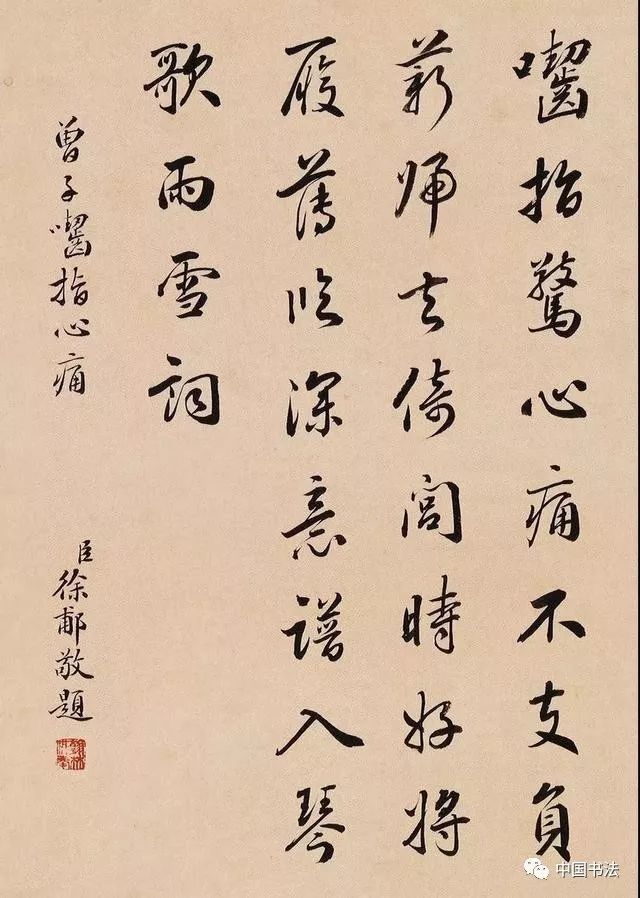 囓指驚心痛不支負
薪歸去倚閭時好將
履薄臨深意譜入琴
歌雨雪詞
曾子囓指心痛
臣徐郙敬題
中国书法